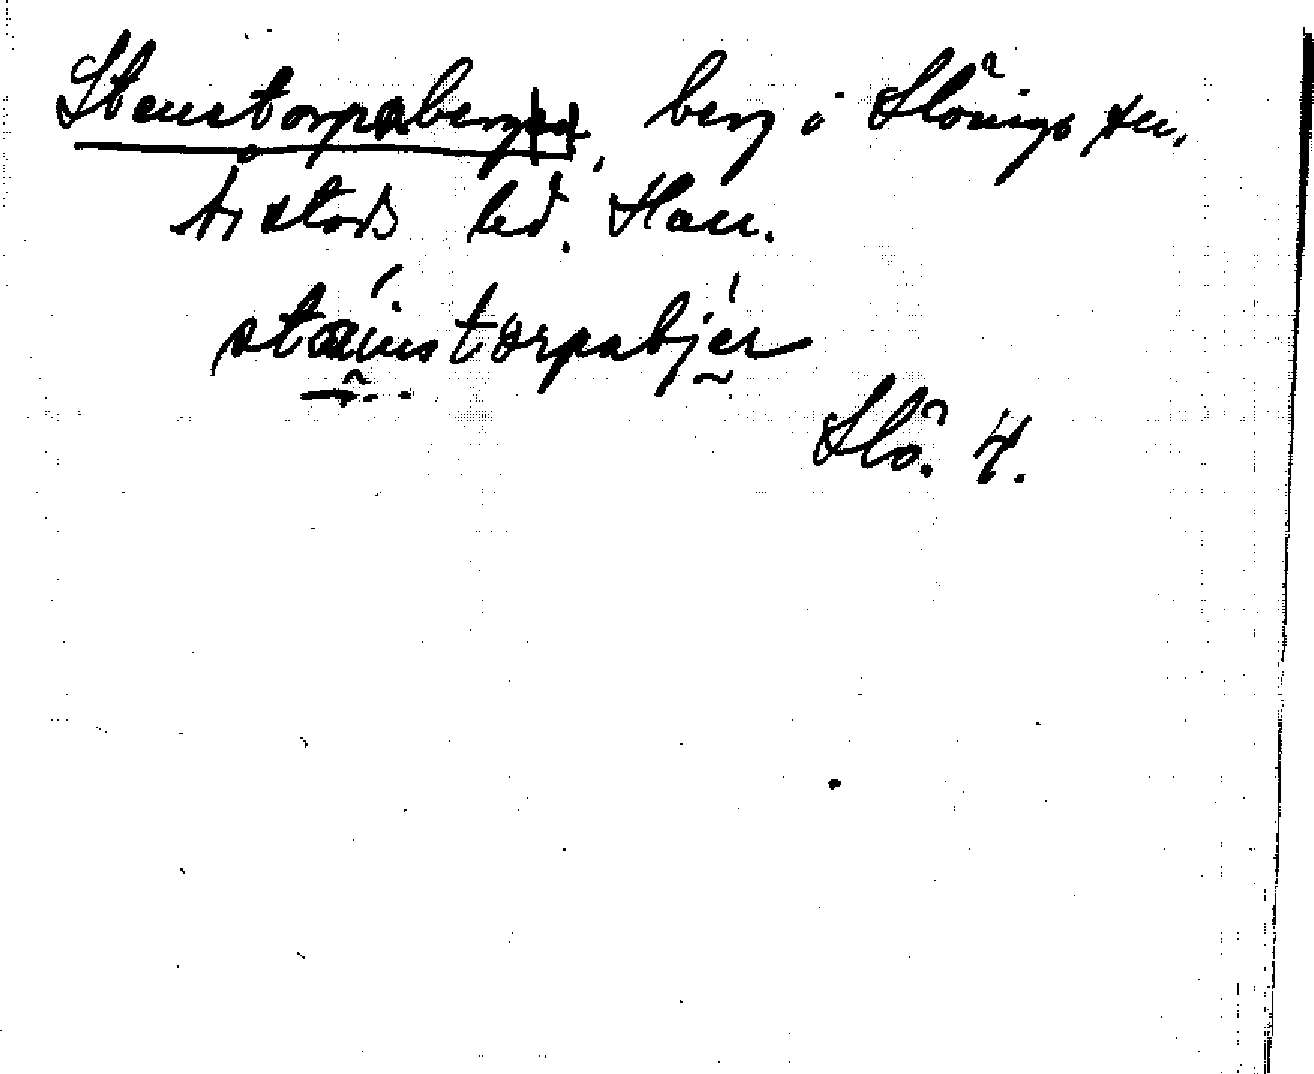 Stenstorpaberg, berg i Slöinge sn,
Årstads hd. Hall.
stäinstorpabjär
Slö. 4.